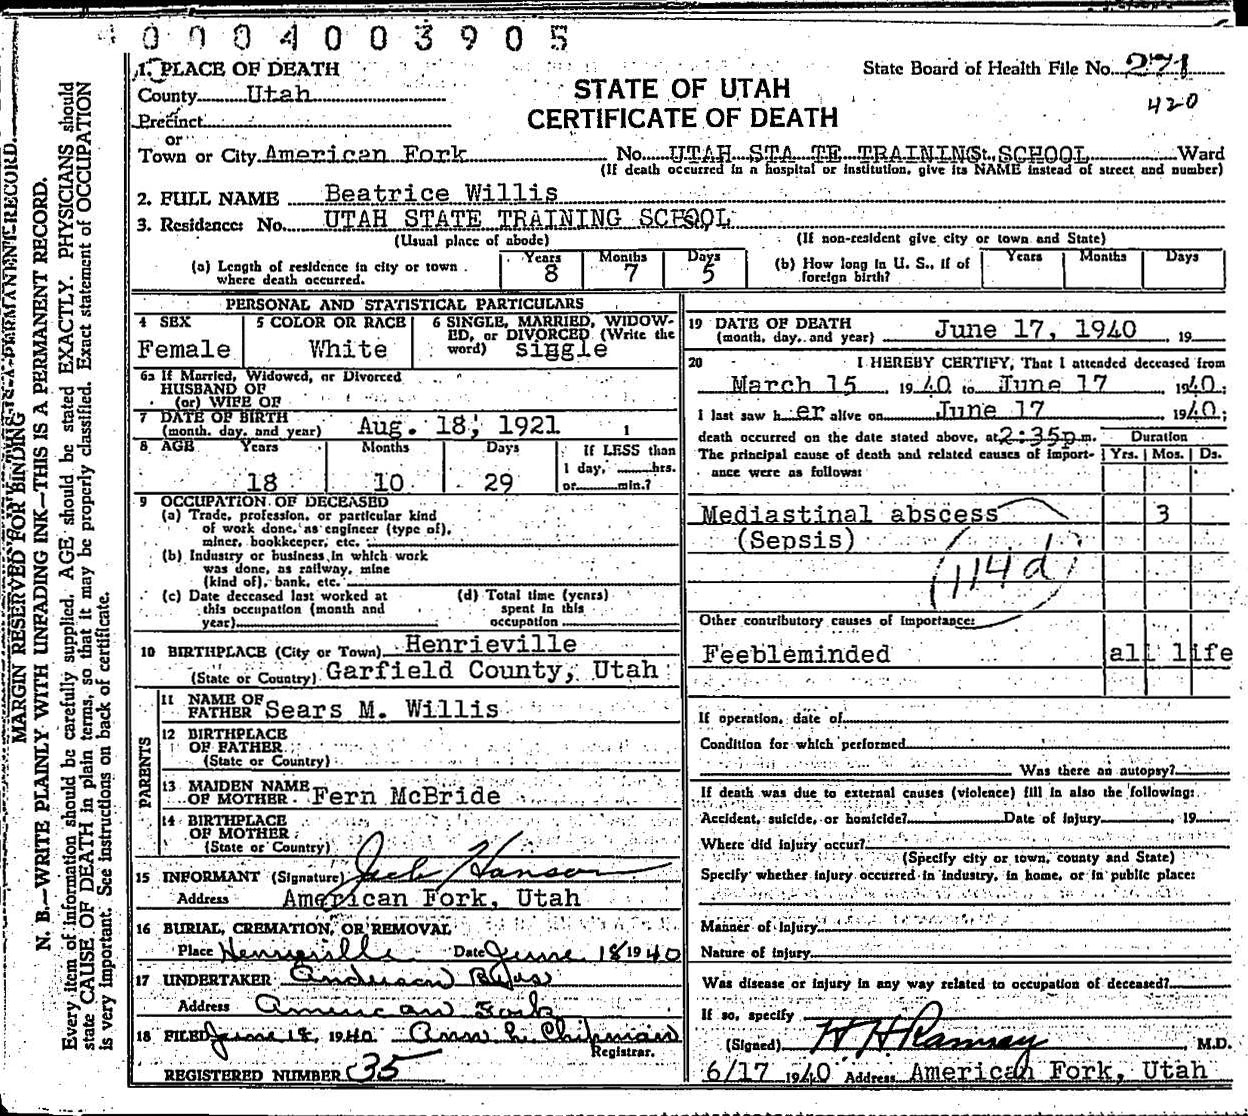 0004003905
1. PLACE OF DEATH
County Utah
Precinct
or
Town or City American Fork
STATE OF UTAH
CERTIFICATE OF DEATH
State Board of Health File No. 271
420
No. UTAH STA TE TRAINING St. SCHOOL Ward
(If death occurred in a hospital or institution, give its NAME instead of street and number)
2. FULL NAME Beatrice Willis
3. Residence: No. UTAH STATE TRAINING SCHOOL
(Usual place of abode) (If non-resident give city or town and State)
(a) Length of residence in city or town where death occurred. Years 8 Months 7 Days 5
(b) How long in U. S., if of foreign birth? Years Months Days
PERSONAL AND STATISTICAL PARTICULARS
4 SEX Female
5 COLOR OR RACE White
6 SINGLE, MARRIED, WIDOWED, or DIVORCED (Write the word) siggle
6a If Married, Widowed, or Divorced
HUSBAND OF
(or) WIFE OF
7 DATE OF BIRTH
(month, day, and year) Aug. 18, 1921
8 AGE Years 18 Months 10 Days 29
If LESS than
1 day, hrs.
or min.?
9 OCCUPATION OF DECEASED
(a) Trade, profession, or particular kind
of work done, as engineer (type of),
miner, bookkeeper, etc.
(b) Industry or business in which work
was done, as railway, mine
(kind of), bank, etc.
(c) Date deceased last worked at
this occupation (month and
year)
(d) Total time (years)
spent in this
occupation
10 BIRTHPLACE (City or Town) Henrieville
(State or Country) Garfield County, Utah
PARENTS
11 NAME OF
FATHER Sears M. Willis
12 BIRTHPLACE
OF FATHER
(State or Country)
13 MAIDEN NAME
OF MOTHER Fern McBride
14 BIRTHPLACE
OF MOTHER
(State or Country)
15 INFORMANT (Signature) Jack Hanson
Address American Fork, Utah
16 BURIAL, CREMATION, OR REMOVAL
Place Henrieville Date June 18 1940
17 UNDERTAKER Anderson
Address American Fork
18 FILED June 18, 1940 Ann L. Chipman
Registrar.
REGISTERED NUMBER 35
19 DATE OF DEATH
(month, day, and year) June 17, 1940, 19
20 I HEREBY CERTIFY, That I attended deceased from
March 15 1940 to June 17 1940;
I last saw her alive on June 17 1940;
death occurred on the date stated above, at 2:35p m.
Duration
The principal cause of death and related causes of import- Yrs. Mos. Ds.
ance were as follows:
Mediastinal abscess 3
(Sepsis)
114d
Other contributory causes of importance:
Feebleminded all life
If operation, date of
Condition for which performed
Was there an autopsy?
If death was due to external causes (violence) fill in also the following:
Accident, suicide, or homicide? Date of injury, 19
Where did injury occur?
(Specify city or town, county and State)
Specify whether injury occurred in industry, in home, or in public place:
Manner of Injury
Nature of injury
Was disease or injury in any way related to occupation of deceased?
If so, specify
(Signed) H H Ramsay M.D.
6/17 1940 Address American Fork, Utah
MARGIN RESERVED FOR BINDING
N. B.—WRITE PLAINLY WITH UNFADING INK—THIS IS A PERMANENT RECORD.
Every item of information should be carefully supplied. AGE should be stated EXACTLY. PHYSICIANS should
state CAUSE OF DEATH in plain terms, so that it may be properly classified. Exact statement of OCCUPATION
is very important. See instructions on back of certificate.